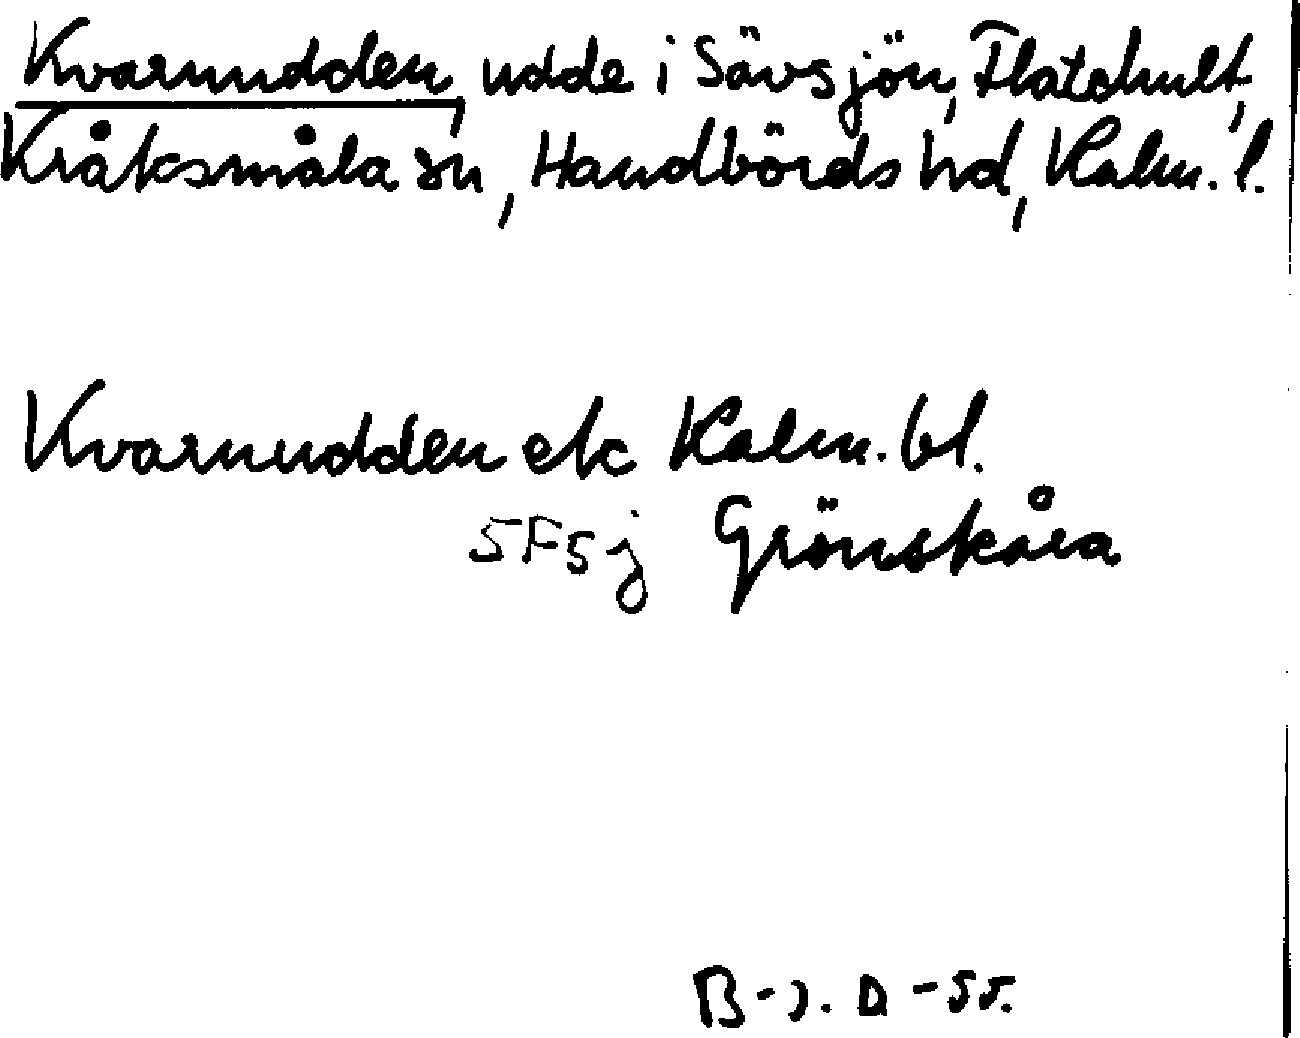 Kvarnudden, udde i Sävsjön, Flatehult,
Kråksmåla sn, Handbörds hd, Kalm. l.
Kvarnudden ek Kalm. bl.
5F5j Grönskåra
B-J. D -55.